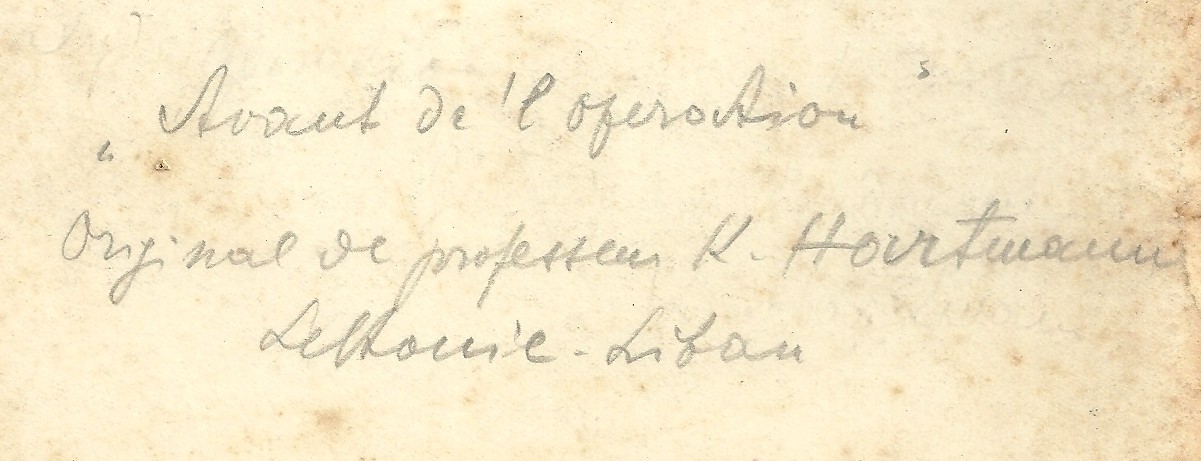 „Avant de 'l operation"
Original de professeur K. Hartmann
Lettonie - Libau